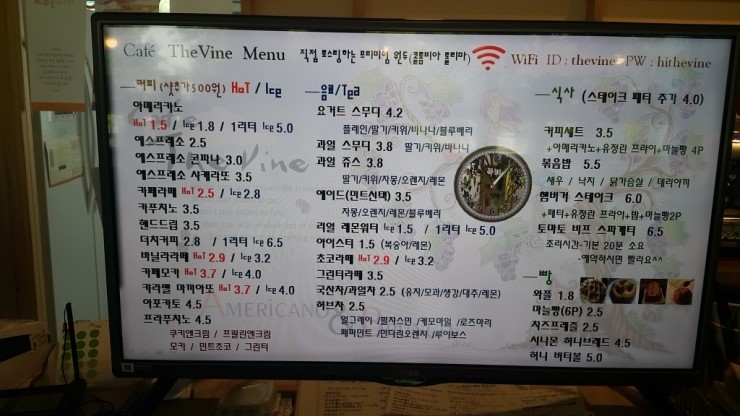 Café TheVine Menu 직접 로스팅하는 프리미엄 원두(콜롬비아 톨리마) WiFi ID : thevine PW : hithevine
커피 (샷추가500원) HoT / Ice
아메리카노
HoT 1.5 / Ice 1.8 / 1리터 Ice 5.0
에스프레소 2.5
에스프레소 코파나 3.0
에스프레소 사케라또 3.5
카페라떼 HoT 2.5 / Ice 2.8
카푸치노 3.5
핸드드립 3.5
더치커피 2.8 / 1리터 6.5
바닐라라떼 HoT 2.9 / Ice 3.2
카페모카 HoT 3.7 / Ice 4.0
카라멜 마끼아또 HoT 3.7 / Ice 4.0
아포카토 4.5
프라푸치노 4.5
쿠키앤크림 / 프렐린앤크림
모카 / 민트초코 / 그린티
음료/Tea
요거트 스무디 4.2
플레인/딸기/키위/바나나/블루베리
과일 스무디 3.8 딸기/키위/바나나
과일 쥬스 3.8
딸기/키위/자몽/오렌지/레몬
에이드(민트선택) 3.5
자몽/오렌지/레몬/블루베리
리얼 레몬워터 Ice 1.5 / 1리터 Ice 5.0
아이스티 1.5 (복숭아/레몬)
초코라떼 HoT 2.9 / Ice 3.2
그린티라떼 3.5
국산차/과일차 2.5 (유자/모과/생강/대추/레몬)
허브차 2.5
얼그레이/쟈스민/캐모마일/로즈마리
페퍼민트/만다린오렌지/루이보스
식사 (스테이크 패티 추가 4.0)
커피세트 3.5
+아메리카노+유정란 프라이+마늘빵 4P
볶음밥 5.5
새우 / 낙지 / 닭가슴살 / 데리야끼
햄버거 스테이크 6.0
+패티+유정란 프라이+밥+마늘빵2P
토마토 비프 스파게티 6.5
조리시간-기본 20분 소요
-예약하시면 빨라요^^
빵
와플 1.8
마늘빵(6P) 2.5
치즈프레즐 2.5
시나몬 허니브레드 4.5
허니 버터볼 5.0
AMERICANO
LG